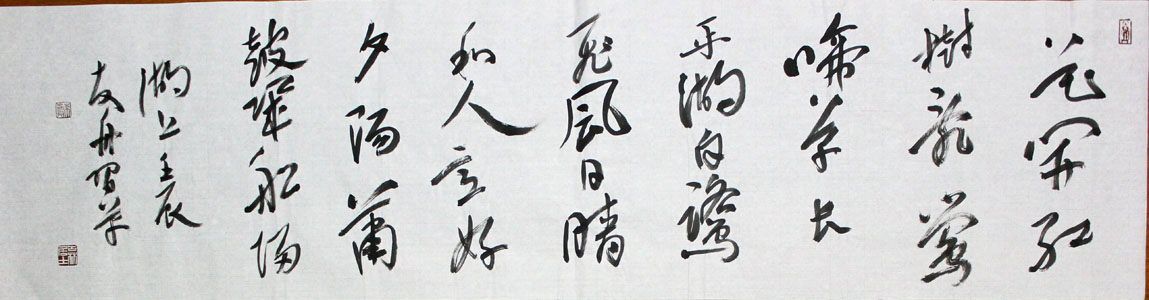 花開紅
樹亂鶯
啼草長
平湖白鷺
飛風日晴
和人意好
夕陽蕭
鼓幾船歸
湖上壬辰
友舟習草